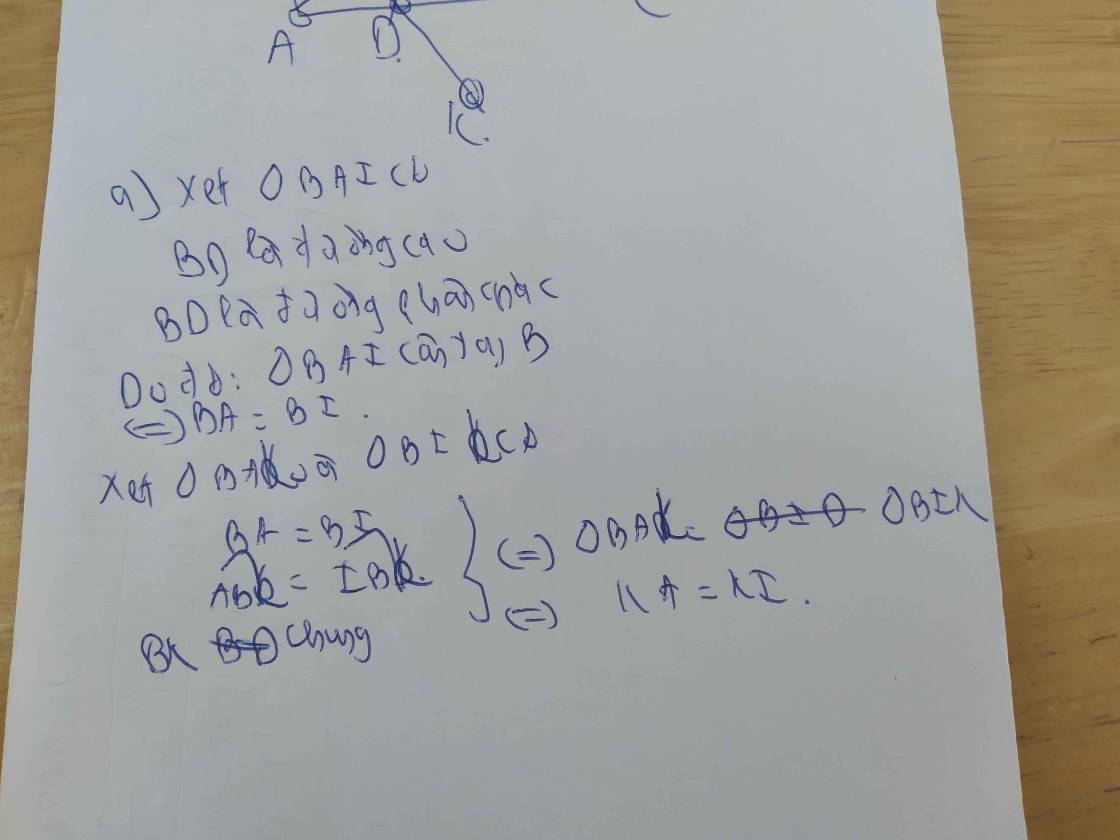 A D
K
a) Xét Δ BAI có
BD là đường cao
BD là đường phân giác
Do đó: Δ BAI cân tại B
(=) BA = BI.
Xét Δ BAK và Δ BIK có
BA = BI
ABK = IBK.
BK BD chung
(=) Δ BAK = Δ BID Δ BIK
(=) KA = KI.